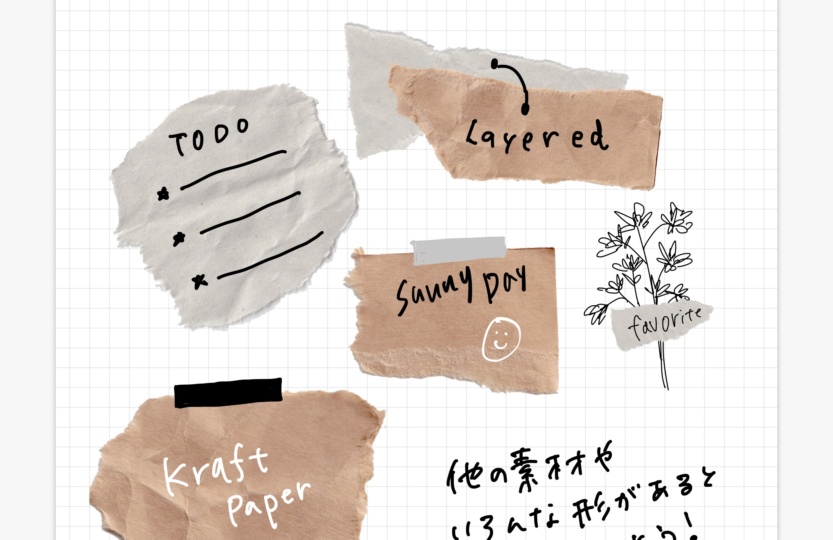 TODO
Layered
Sunny Day
favorite
Kraft
paper
他の素材や
いろんな形があると